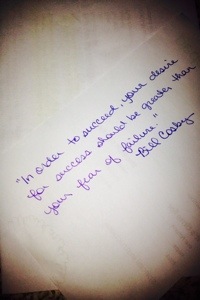 "In order to succeed, your desire
for success should be greater than
your fear of failure."
Bill Cosby